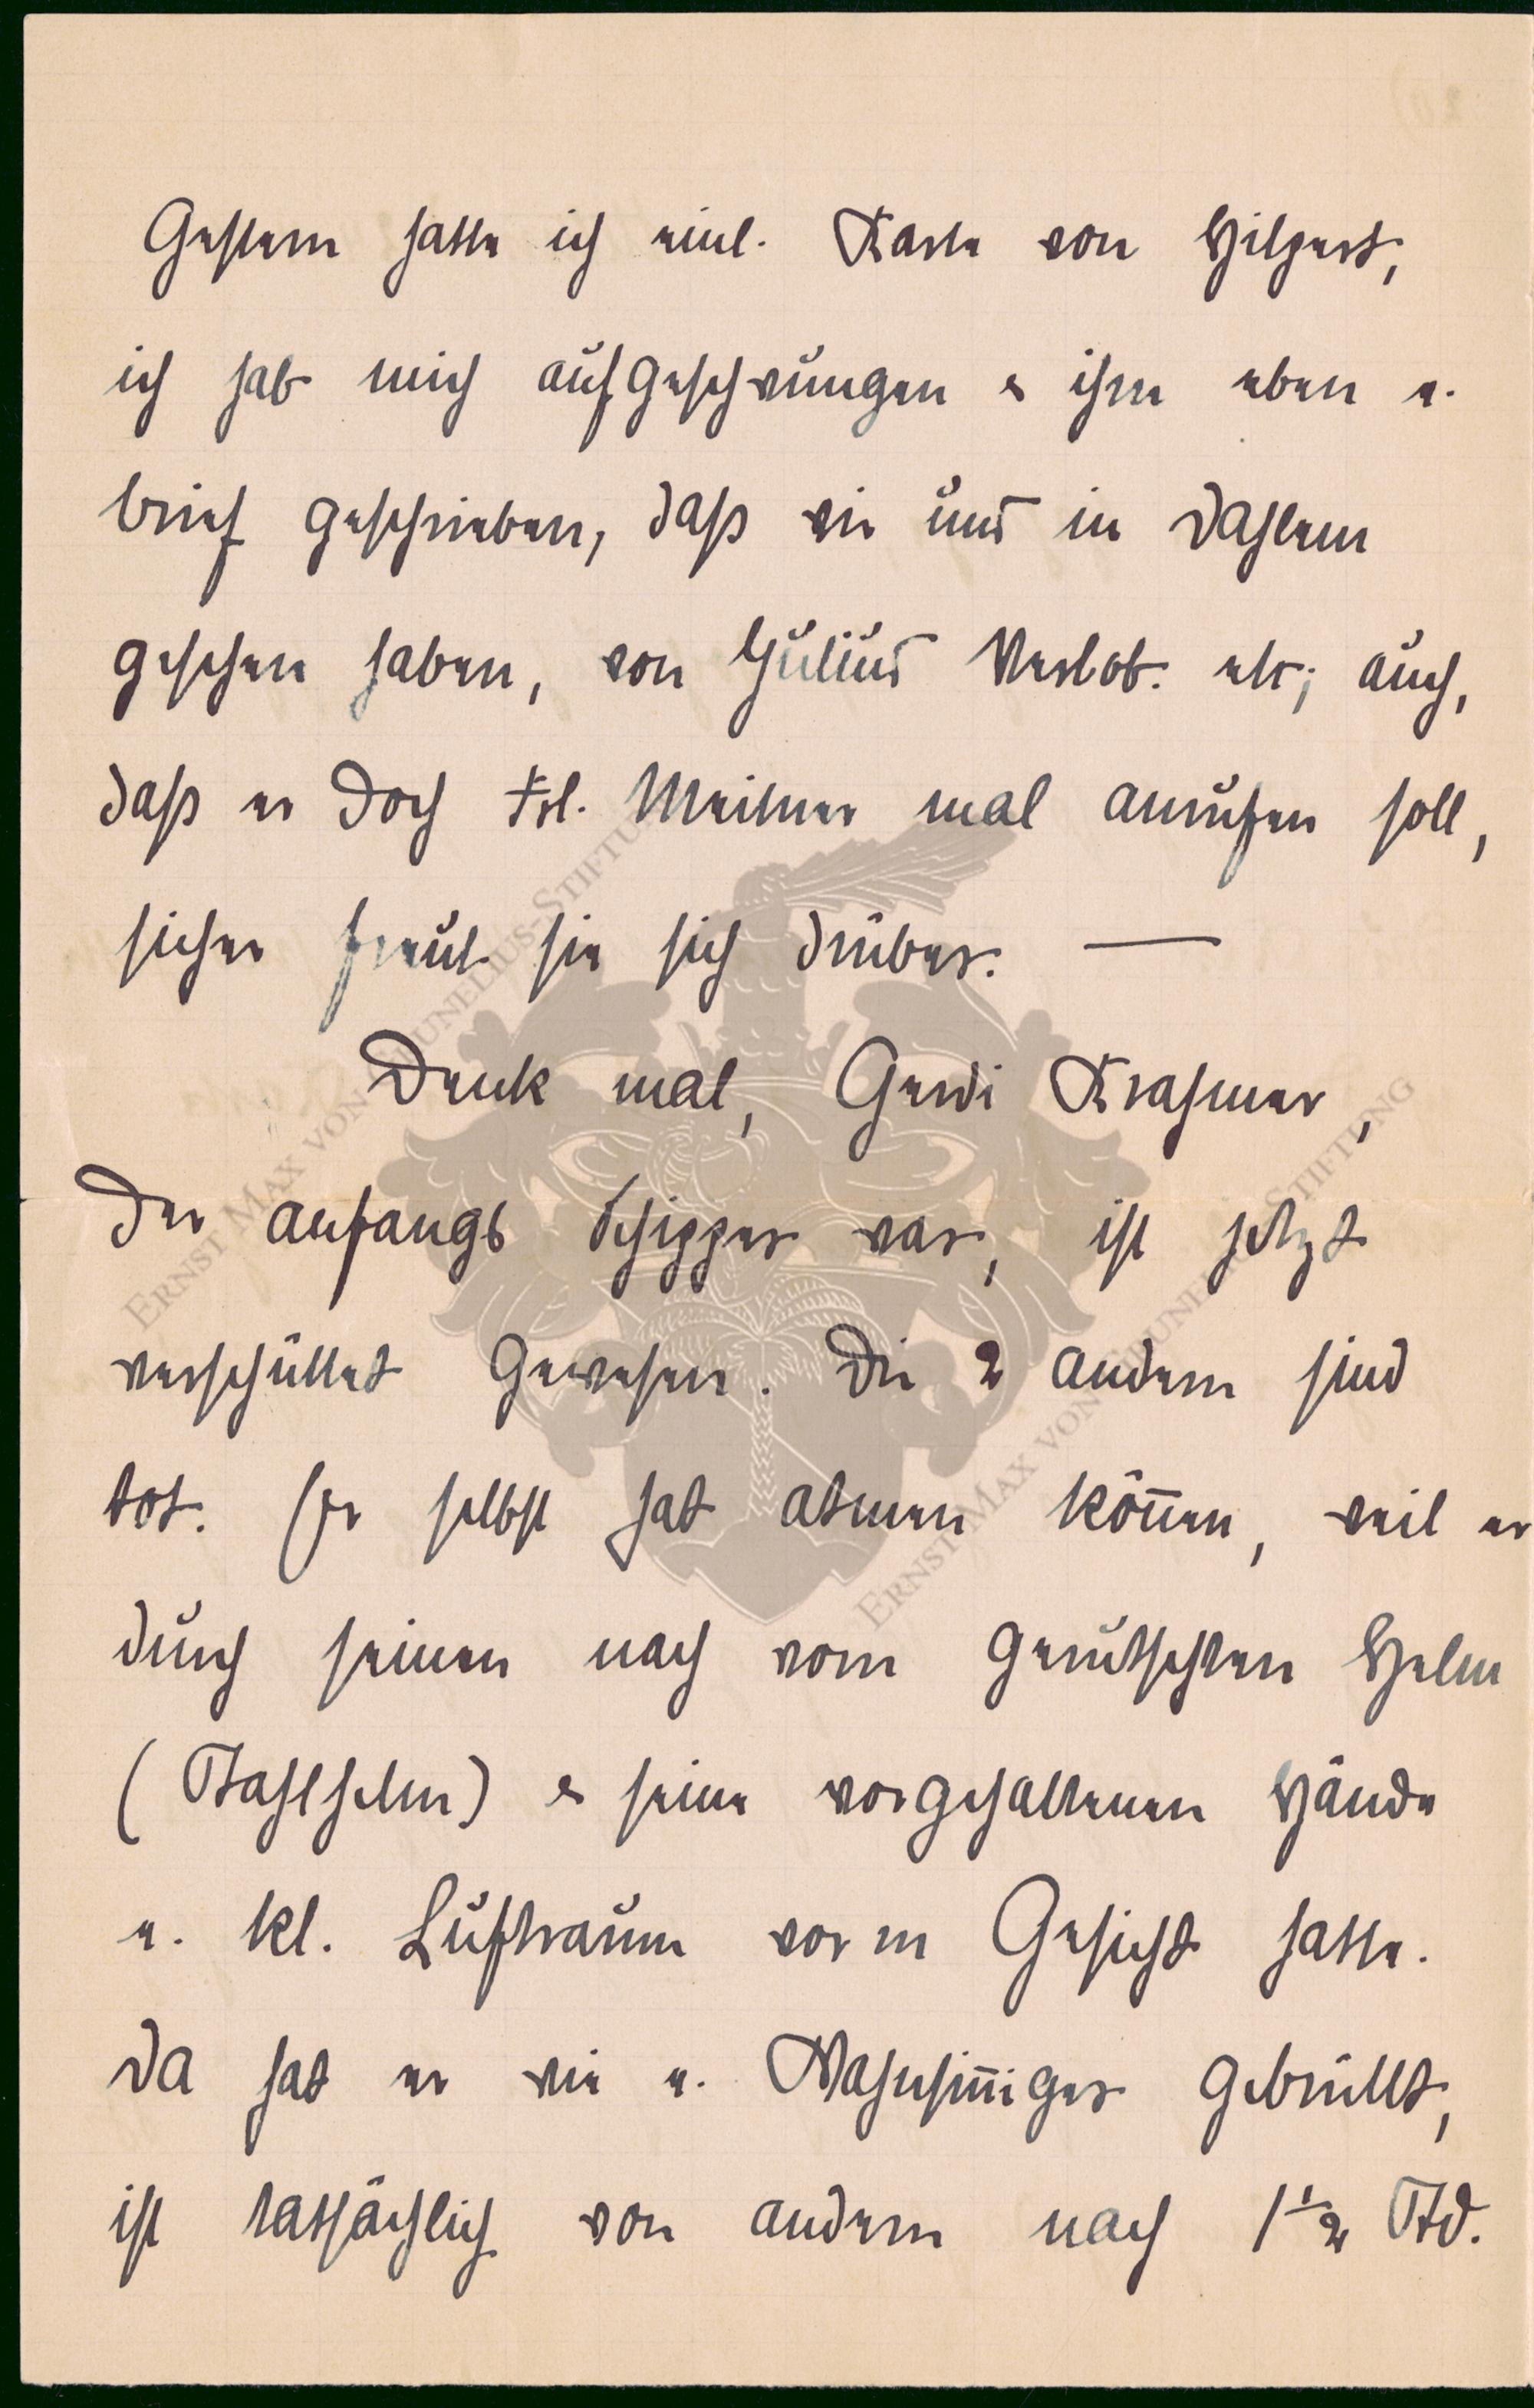 Gestern hatte ich eine Karte von Hilpert,
ich hab mich aufgeschwungen & ihm eben e.
brief geschrieben, daß wir uns in Dahlem
gesehen haben, von Julius Verlob. etc; auch,
daß er doch Frl. Meitner mal anrufen soll,
sicher freut sie sich drüber. —
Denk mal, Gerdi Krahmer,
der anfangs Schipper war, ist jetzt
verschüttet gewesen. Die 2 andern sind
tot. Er selbst hat atmen können, weil er
durch seinen nach vorn gerutschten Helm
(Stahlhelm) & seine vorgehaltenen Hände
e. kl. Luftraum vorm Gesicht hatte.
Da hat er wie e. Wahnsinniger gebrüllt,
ist tatsächlich von andern nach 1½ Std.
ERNST MAX VON GRUNELIUS-STIFTUNG
ERNST MAX VON GRUNELIUS-STIFTUNG